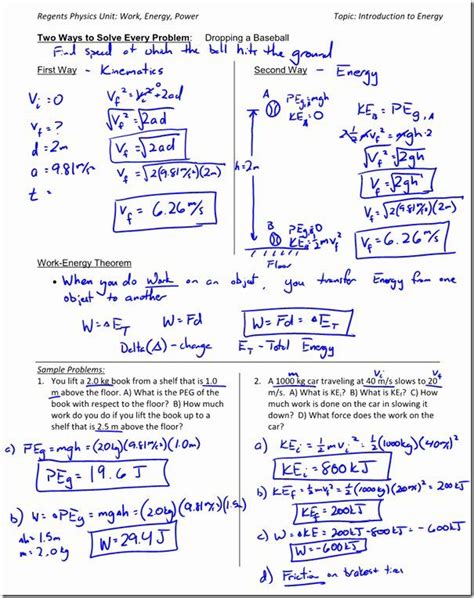 Regents Physics Unit: Work, Energy, Power Topic: Introduction to Energy
Two Ways to Solve Every Problem: Dropping a Baseball
Find speed at which the ball hits the ground
First Way - Kinematics
Vi = 0
Vf = ?
d = 2m
a = 9.81 m/s²
t =
Vf² = Vi² + 2ad
√Vf² = √2ad
Vf = √2ad
Vf = √2(9.81 m/s²)(2m)
Vf = 6.26 m/s
Second Way - Energy
A
PEg = mgh
KE = 0
h = 2m
B
PEg = 0
KE = ½mvf²
Floor
KEB = PEg,A
2 ½mvf² = mgh·2
√Vf² = √2gh
Vf = √2gh
√2(9.81 m/s²)(2m)
Vf = 6.26 m/s
Work-Energy Theorem
• When you do work on an object, you transfer Energy from one
object to another
W = ΔET W = Fd W = Fd = ΔET
Delta (Δ) - change ET - Total Energy
Sample Problems:
1. You lift a 2.0 kg book from a shelf that is 1.0
m above the floor. A) What is the PEG of the
book with respect to the floor? B) How much
work do you do if you lift the book up to a
shelf that is 2.5 m above the floor?
a) PEg = mgh = (2.0kg)(9.81 m/s²)(1.0m)
PEg = 19.6 J
b) W = ΔPEg = mgΔh = (2.0kg)(9.81 m/s²)(1.5m)
Δh = 1.5m
m = 2.0 kg
W = 29.4 J
m Vi Vf
2. A 1000 kg car traveling at 40 m/s slows to 20
m/s. A) What is KEi? B) What is KEf? C) How
much work is done on the car in slowing it
down? D) What force does the work on the
car?
a) KEi = ½mvi² = ½(1000kg)(40 m/s)²
KEi = 800 kJ
b) KEf = ½mvf² = ½(1000kg)(20 m/s)² = 200kJ
KEf = 200 kJ
c) W = ΔKE = 200kJ - 800kJ = -600kJ
W = -600kJ
d) Friction on